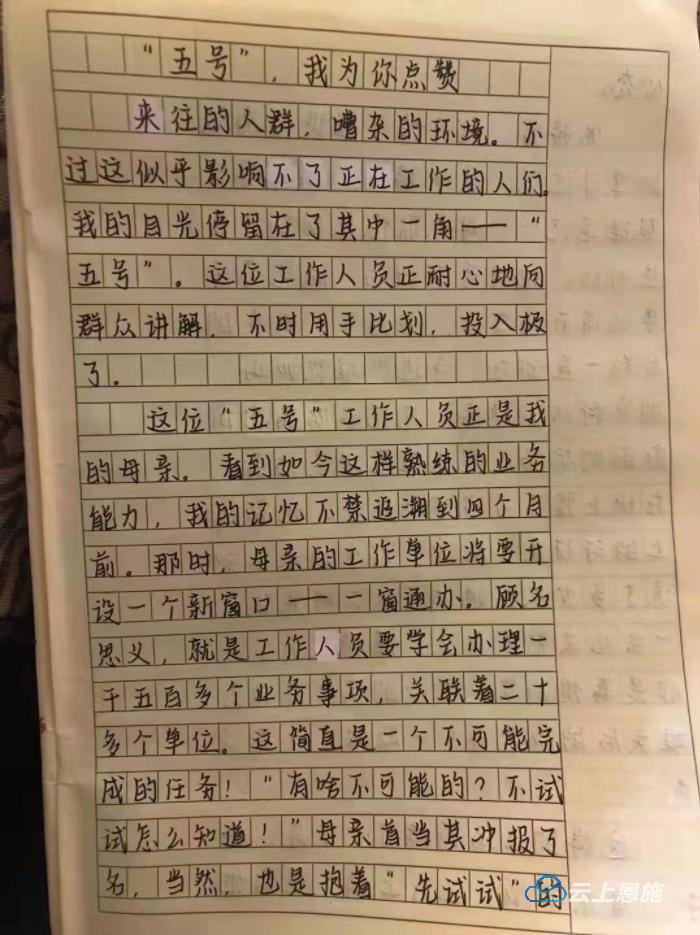 “五号”，我为你点赞
来往的人群，嘈杂的环境。不
过这似乎影响不了正在工作的人们。
我的目光停留在了其中一角——“
五号”。这位工作人员正耐心地向
群众讲解，不时用手比划，投入极
了。
这位“五号”工作人员正是我
的母亲。看到如今这样熟练的业务
能力，我的记忆不禁追溯到四个月
前。那时，母亲的工作单位将要开
设一个新窗口——一窗通办。顾名
思义，就是工作人员要学会办理一
千五百多个业务事项，关联着二十
多个单位。这简直是一个不可能完
成的任务！“有啥不可能的？不试
试怎么知道！”母亲首当其冲报了
名，当然，也是抱着“先试试”的
云上恩施